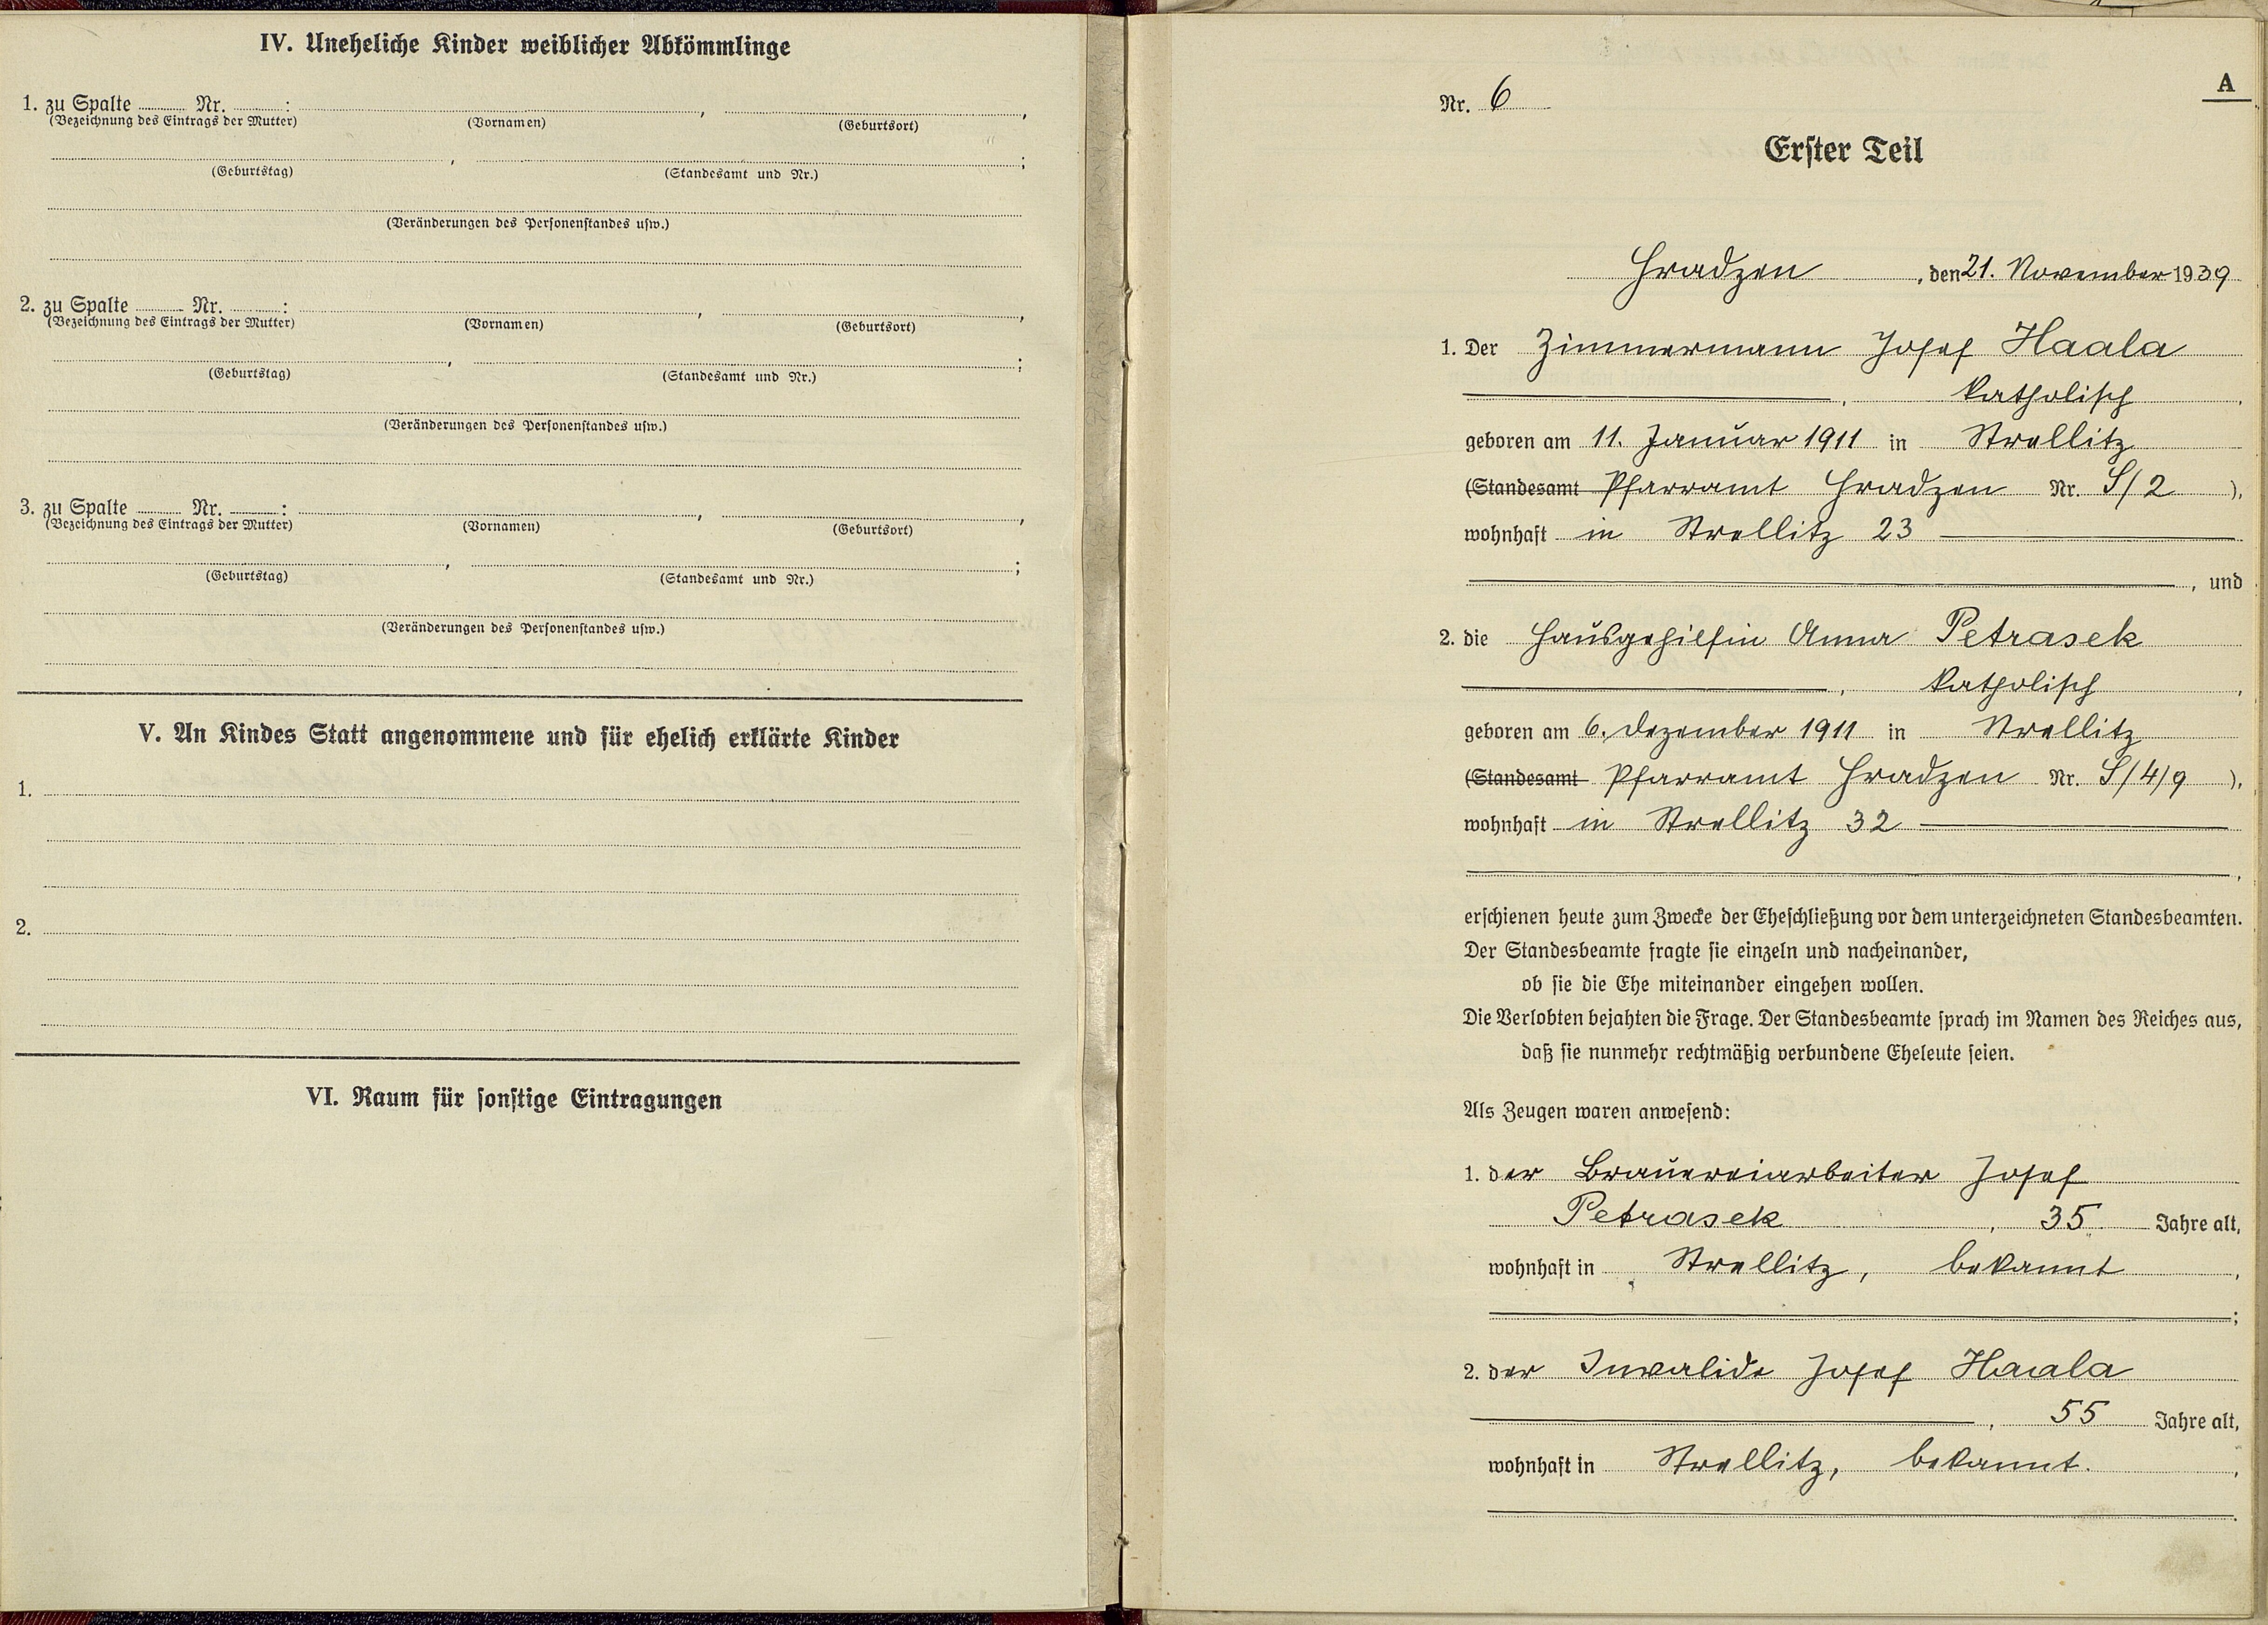 IV. Uneheliche Kinder weiblicher Abkömmlinge
1. zu Spalte ........ Nr. ........ : ........ , ........ ,
(Bezeichnung des Eintrags der Mutter) (Vornamen) (Geburtsort)
........ , ........ ;
(Geburtstag) (Standesamt und Nr.)
(Veränderungen des Personenstandes usw.)
2. zu Spalte ........ Nr. ........ : ........ , ........ ,
(Bezeichnung des Eintrags der Mutter) (Vornamen) (Geburtsort)
........ , ........ ;
(Geburtstag) (Standesamt und Nr.)
(Veränderungen des Personenstandes usw.)
3. zu Spalte ........ Nr. ........ : ........ , ........ ,
(Bezeichnung des Eintrags der Mutter) (Vornamen) (Geburtsort)
........ , ........ ;
(Geburtstag) (Standesamt und Nr.)
(Veränderungen des Personenstandes usw.)
V. An Kindes Statt angenommene und für ehelich erklärte Kinder
1.
2.
VI. Raum für sonstige Eintragungen
A
Nr. 6
Erster Teil
Hradzen, den 21. November 1939
1. Der Zimmermann Josef Haala
, katholisch,
geboren am 11. Januar 1911 in Strellitz
(Standesamt Pfarramt Hradzen Nr. S/2),
wohnhaft in Strellitz 23
, und
2. die Hausgehilfin Anna Petrasek
, katholisch,
geboren am 6. Dezember 1911 in Strellitz
(Standesamt Pfarramt Hradzen Nr. S/4/9),
wohnhaft in Strellitz 32
,
erschienen heute zum Zwecke der Eheschließung vor dem unterzeichneten Standesbeamten.
Der Standesbeamte fragte sie einzeln und nacheinander,
ob sie die Ehe miteinander eingehen wollen.
Die Verlobten bejahten die Frage. Der Standesbeamte sprach im Namen des Reiches aus,
daß sie nunmehr rechtmäßig verbundene Eheleute seien.
Als Zeugen waren anwesend:
1. der Brauereiarbeiter Josef
Petrasek, 35 Jahre alt,
wohnhaft in Strellitz, bekannt,
;
2. der Invalide Josef Haala
, 55 Jahre alt,
wohnhaft in Strellitz, bekannt.,
.